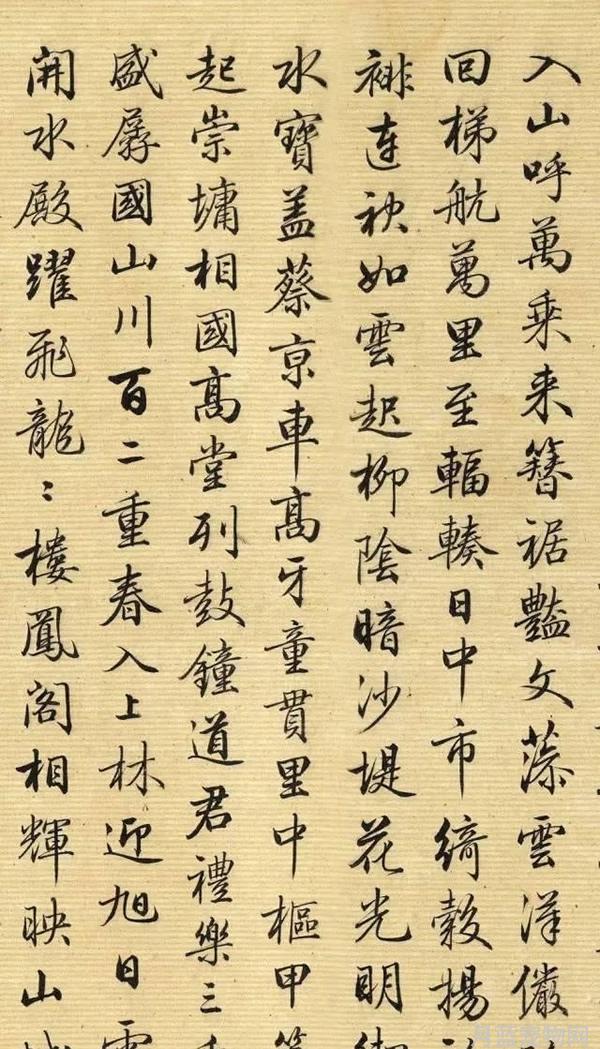 入山呼萬乘来簪裾艷文藻雲漢儼
回梯航萬里至輻輳日中市綺縠揚
裶連袂如雲起柳陰暗沙堤花光明
水寶盖蔡京車髙牙童貫里中樞甲
起崇墉相國髙堂列鼓鐘道君禮樂三
盛孱國山川百二重春入上林迎旭日
開水殿躍飛龍〻樓鳳閣相輝映山